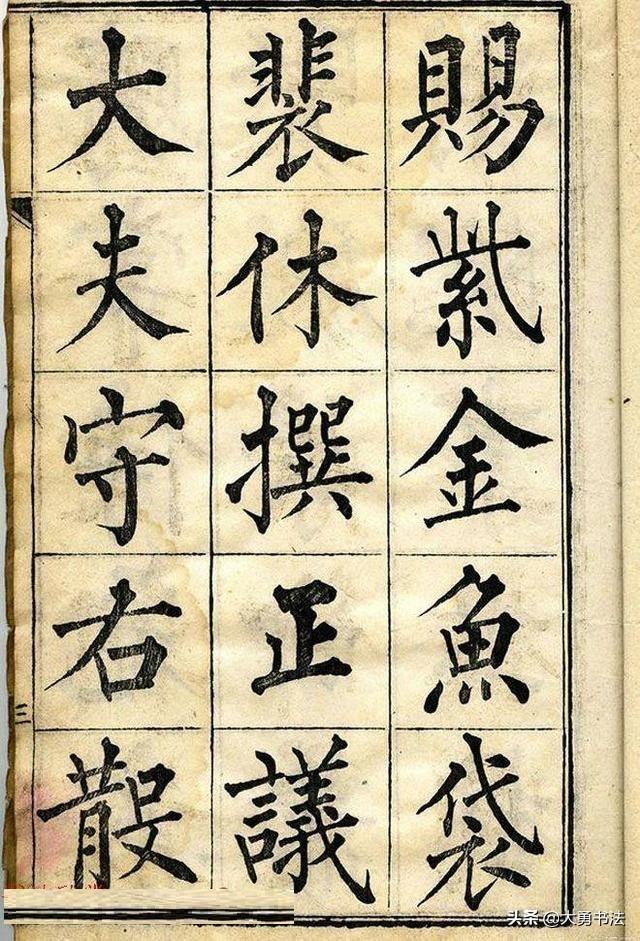 賜紫金魚袋
裴休撰正議
大夫守右散
三
头条 @大勇书法